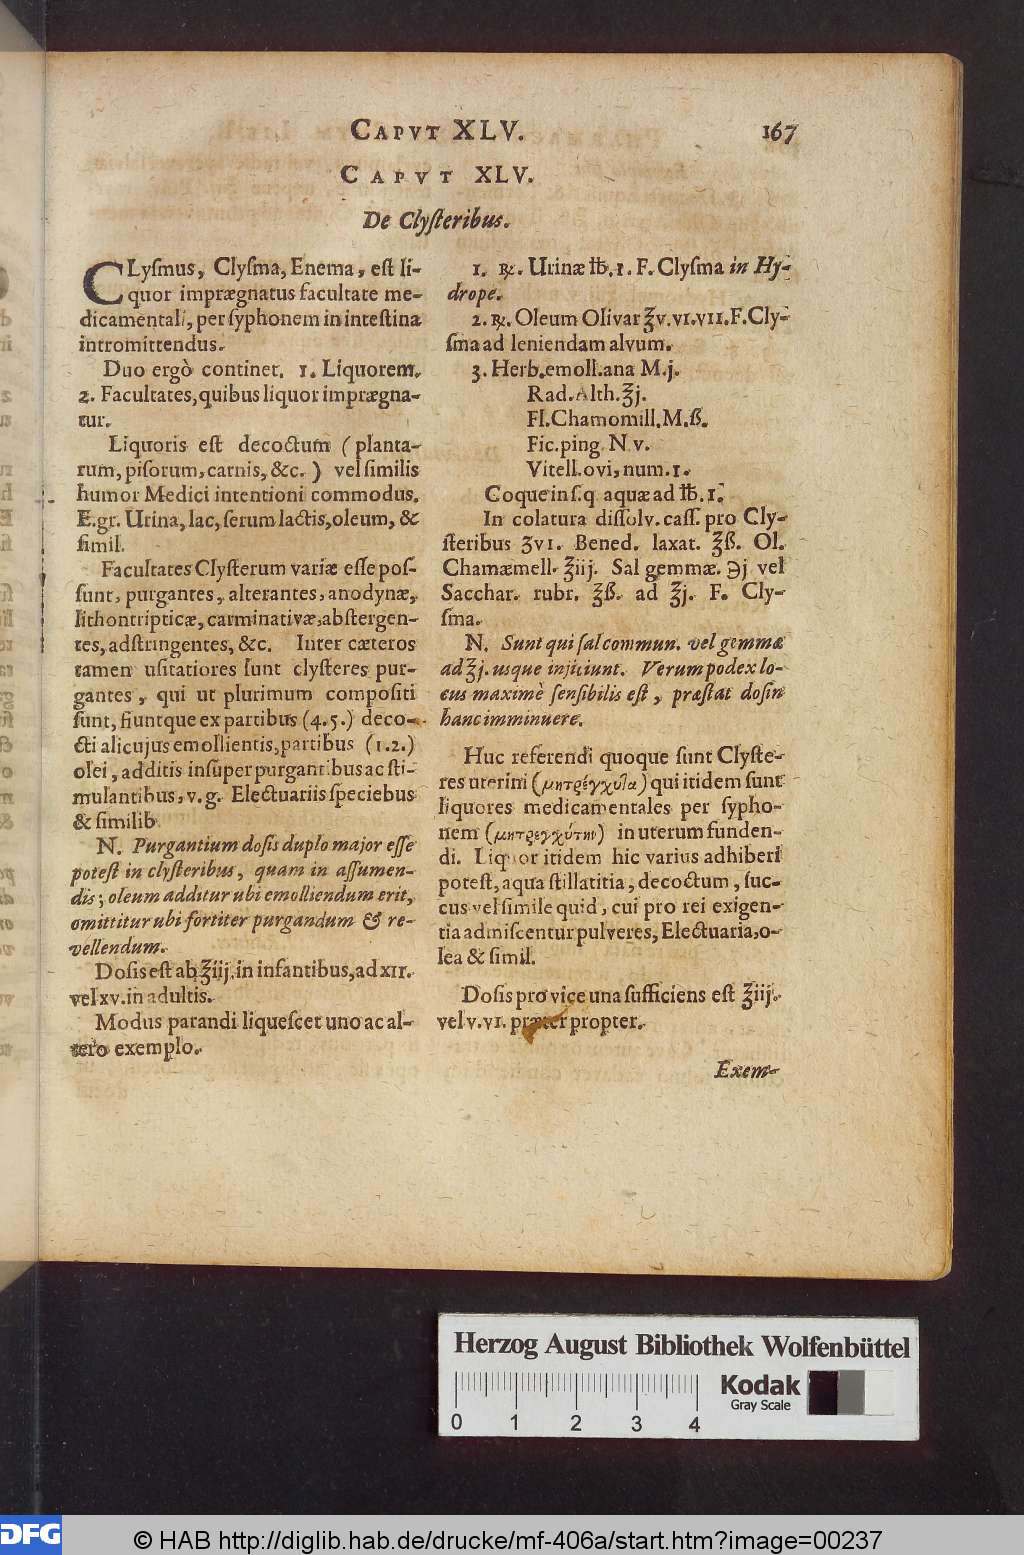 CAPVT XLV. 167
CAPVT XLV.
De Clyſteribus.
CLyſmus, Clyſma, Enema, eſt li-
quor imprægnatus facultate me-
dicamentali, per ſyphonem in inteſtina
intromittendus.
Duo ergò continet. 1. Liquorem.
2. Facultates, quibus liquor imprægna-
tur.
Liquoris eſt decoctum (planta-
rum, piſorum, carnis, &c.) vel ſimilis
humor Medici intentioni commodus.
E.gr. Urina, lac, ſerum lactis, oleum, &
ſimil.
Facultates Clyſterum variæ eſſe poſ-
ſunt, purgantes, alterantes, anodynæ,
lithontripticæ, carminativæ, abſtergen-
tes, adſtringentes, &c. Inter cæteros
tamen uſitatiores ſunt clyſteres pur-
gantes, qui ut plurimum compoſiti
ſunt, fiuntque ex partibus (4.5.) deco-
cti alicujus emollientis, partibus (1.2.)
olei, additis inſuper purgantibus ac ſti-
mulantibus, v.g. Electuariis ſpeciebus
& ſimilib.
N. Purgantium doſis duplo major eſſe
poteſt in clyſteribus, quam in aſſumen-
dis; oleum additur ubi emolliendum erit,
omittitur ubi fortiter purgandum & re-
vellendum.
Doſis eſt ab ℥iij. in infantibus, ad XII.
vel XV. in adultis.
Modus parandi liqueſcet uno ac al-
tero exemplo.
1. ℞. Urinæ ℔.1. F. Clyſma in Hy-
drope.
2. ℞. Oleum Olivar ℥v.vi.vii. F. Cly-
ſma ad leniendam alvum.
3. Herb. emoll. ana M.j.
Rad. Alth. ℥j.
Fl. Chamomill. M.ß.
Fic. ping. N v.
Vitell. ovi, num. 1.
Coque in ſ.q aquæ ad ℔. 1.
In colatura diſſolv. caſſ. pro Cly-
ſteribus ʒvi. Bened. laxat. ℥ß. Ol.
Chamæmell. ℥iij. Sal gemmæ. ℈j vel
Sacchar. rubr. ℥ß. ad ℥j. F. Cly-
ſma.
N. Sunt qui ſal commun. vel gemmæ
ad ℥j. usque injiciunt. Verum podex lo-
cus maximè ſenſibilis eſt, præſtat doſin
hanc imminuere.
Huc referendi quoque ſunt Clyſte-
res uterini (μητρέγχῦια) qui itidem ſunt
liquores medicamentales per ſypho-
nem (μητρεγχύτην) in uterum funden-
di. Liquor itidem hic varius adhiberi
poteſt, aqua ſtillatitia, decoctum, ſuc-
cus vel ſimile quid, cui pro rei exigen-
tia admiſcentur pulveres, Electuaria, o-
lea & ſimil.
Doſis pro vice una ſufficiens eſt ℥iij.
vel v.vi. præter propter.
Exem-
Herzog August Bibliothek Wolfenbüttel
Kodak
Gray Scale
0 1 2 3 4
DFG
© HAB http://diglib.hab.de/drucke/mf-406a/start.htm?image=00237